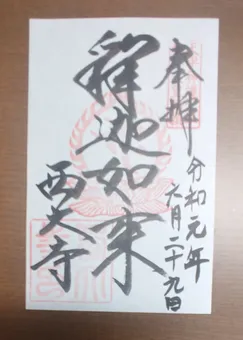 奉拝
令和元年
六月二十九日
釋迦如来
西大寺